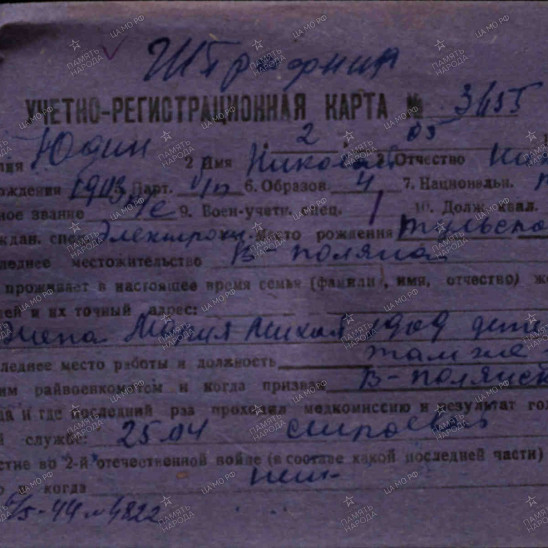 Штрафник
УЧЕТНО-РЕГИСТРАЦИОННАЯ КАРТА № 3655
2 05
Юдин 2 Имя Николай 3. Отчество
рождения 1909 5. Парт. б/п 6. Образов. 4 7. Национальн.
ное звание 9. Воен-учетн. спец. 1 10. Долж. квал.
ждан. спец. место рождения Тульской
следнее местожительство В-поляна
проживает в настоящее время семья (фамилия, имя, отчество) же
ей и их точный адрес:
жена Мария 1909
следнее место работы и должность там же
им райвоенкоматом и когда призван В-полянск
да и где последний раз проходил медкомиссию и результат год
й службе: 25.04 строевой
стие во "2-й" отечественной войне (в составе какой последней части)
о и когда нет
5-44 4822
ПАМЯТЬ НАРОДА
ЦА МО РФ